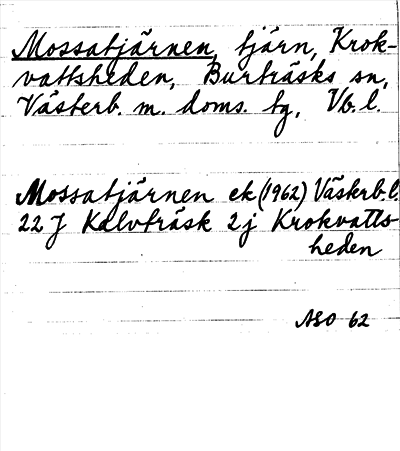 Mossatjärnen, tjärn, Krok-
vattsheden, Burträsks sn,
Västerb. m. doms. tg, Vb. l.
Mossatjärnen ek (1962) Västerb. l.
22 J Kalvträsk 2j Krokvatts-
heden
ASO 62